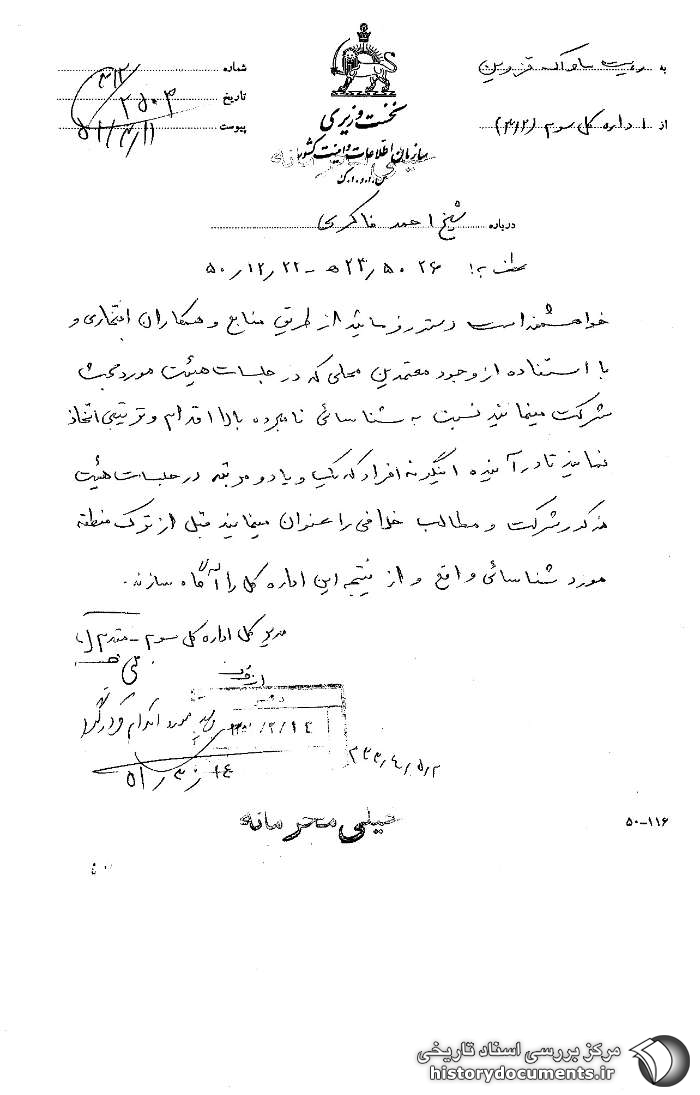 به ریاست ساواک قزوین
از اداره کل سوم (۳۱۲)
نخست وزیری
سازمان اطلاعات و امنیت کشور
س.ا.و.ا.ک
شماره ۳۱۲/
تاریخ
پیوست ۵۱/۳/۱۱
درباره شیخ احمد ذاکری
عطف به: ۵۰۲۶/۲۳ه‍ - ۵۰/۱۲/۲۲
خواهشمند است دستور فرمائید از طریق منابع و همکاران افتخاری و
با استفاده از وجود معتمدین محلی که در جلسات هیئت مورد بحث
شرکت مینمایند نسبت به شناسائی نامبرده بالا اقدام و ترتیبی اتخاذ
نمایند تا در آینده اینگونه افراد که یک و یا دو مرتبه در جلسات هیئت
مذکور شرکت و مطالب خلافی را عنوان مینمایند قبل از ترک منطقه
مورد شناسائی واقع و از نتیجه این اداره کل را آگاه سازند.
مدیر کل اداره سوم - مقدم
خیلی محرمانه
۵۰-۱۱۶
مرکز بررسی اسناد تاریخی
historydocuments.ir